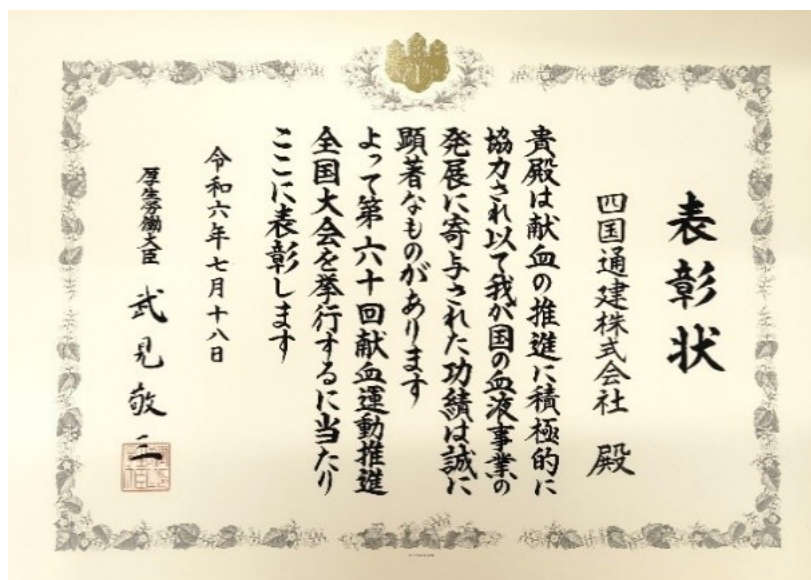 表彰状
四国通建株式会社 殿
貴殿は献血の推進に積極的に
協力され以て我が国の血液事業の
発展に寄与された功績は誠に
顕著なものがあります
よって第六十回献血運動推進
全国大会を挙行するに当たり
ここに表彰します
令和六年七月十八日
厚生労働大臣 武見敬三